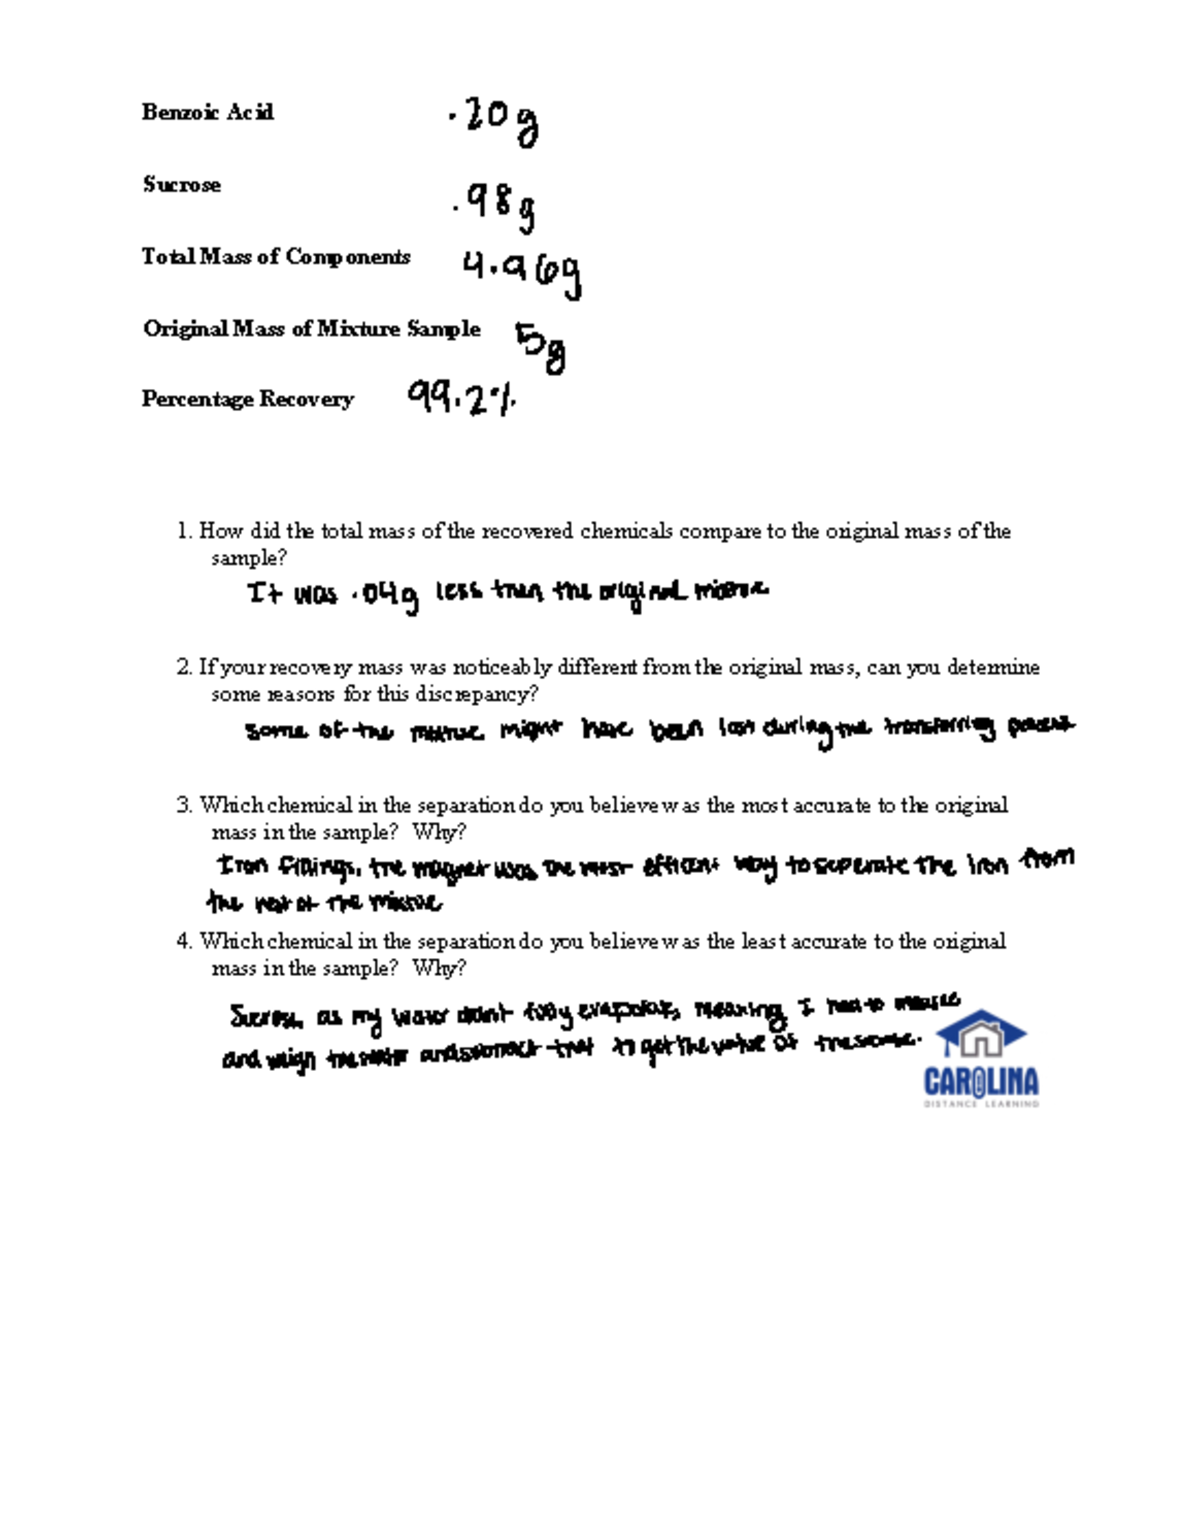 Benzoic Acid .20g
Sucrose .98g
Total Mass of Components 4.96g
Original Mass of Mixture Sample 5g
Percentage Recovery 99.2%
1. How did the total mass of the recovered chemicals compare to the original mass of the
sample?
It was .04g less then the original mixture
2. If your recovery mass was noticeably different from the original mass, can you determine
some reasons for this discrepancy?
Some of the mixture might have been lost during the transferring process
3. Which chemical in the separation do you believe was the most accurate to the original
mass in the sample? Why?
Iron fillings, the magnet was the most efficient way to seperate the iron from
the rest of the mixture
4. Which chemical in the separation do you believe was the least accurate to the original
mass in the sample? Why?
Sucrose, as my water didnt fully evaporate, meaning I had to
and weigh the water and that to get the value of the
CAROLINA
DISTANCE LEARNING